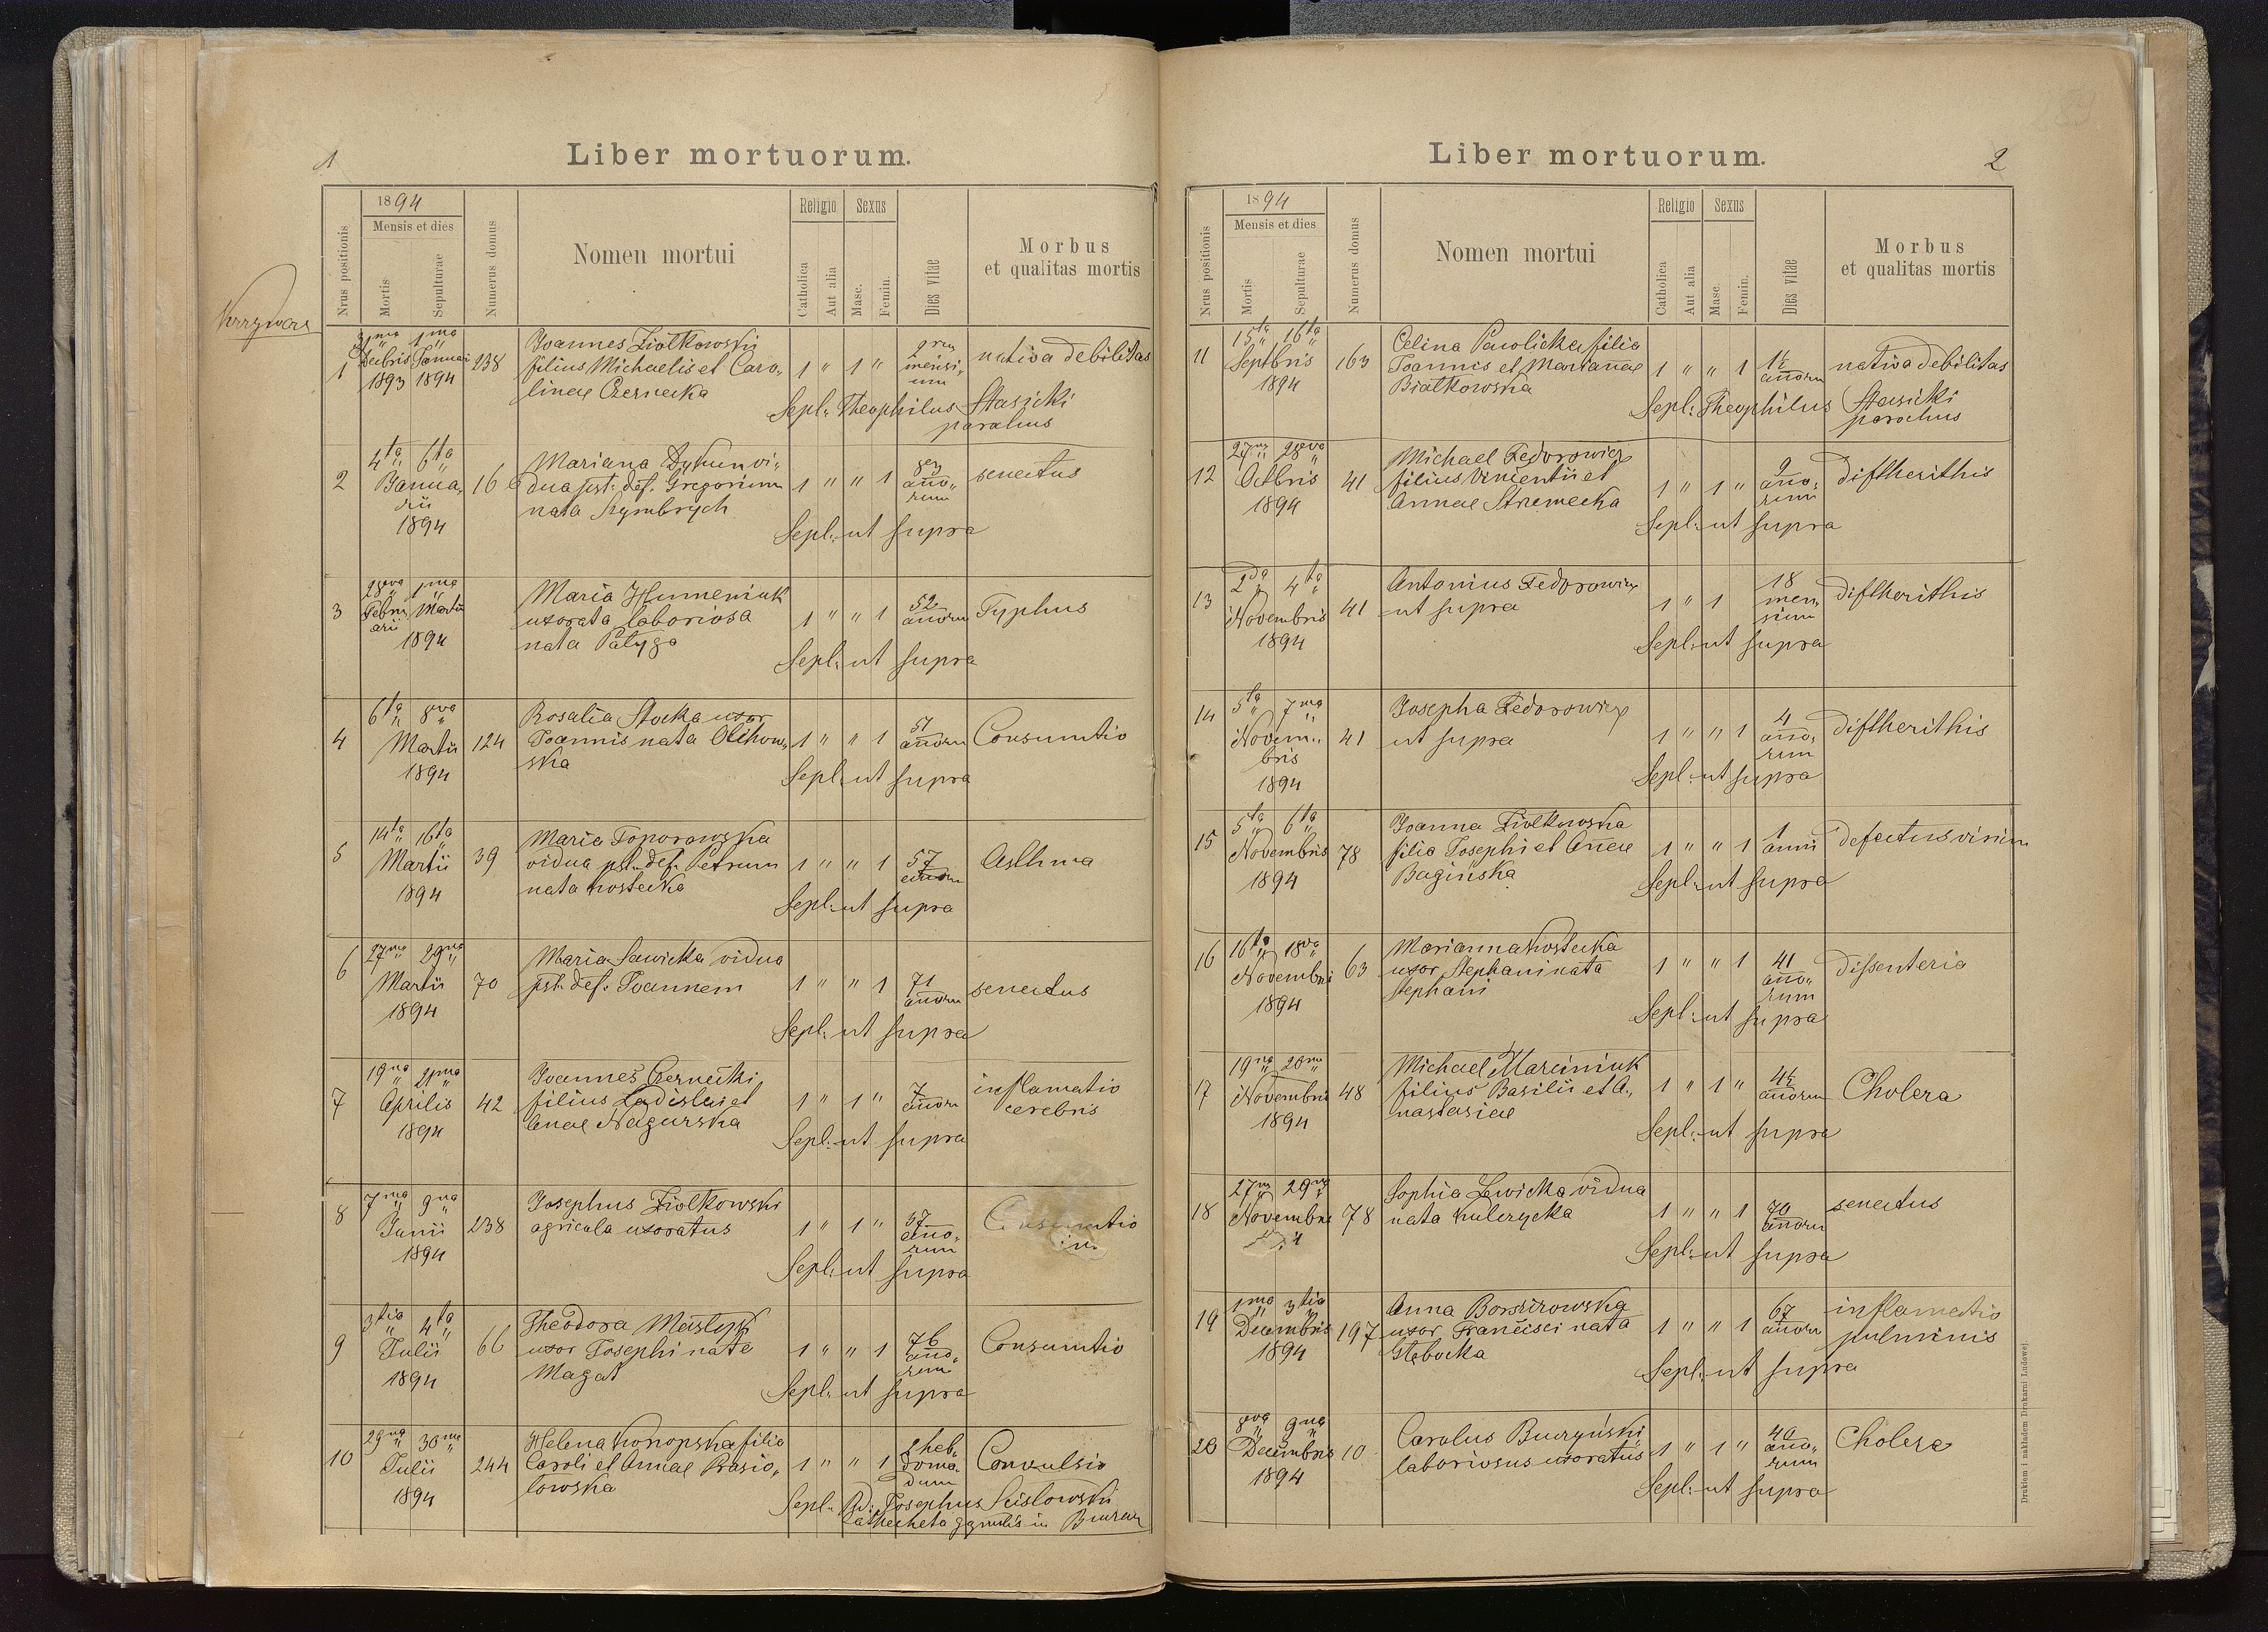 1
Liber mortuorum.
Nrus positionis
1894
Mensis et dies
Mortis
Sepulturae
Numerus domus
Nomen mortui
Religio
Catholica
Aut alia
Sexus
Masc.
Femin.
Dies vitae
Morbus
et qualitas mortis
1
31ma 1ma
Decbris Januar
1893 1894
238
Joannes Ziołkowski
filius Michaelis et Caro„
linae Czernecka
1 " 1 "
mensi„
um
nativa debilitas
Sepl: Theophilus Stasicki
parochus
2
4ta 6ta
Janua„
rii
1894
16
Mariana Dykun vi„
dua pst. def. Gregorium
nata Szymbrych
1 " " 1
ano„
rum
senectus
Sepl: ut supra
3
28va 1ma
Febru Martii
arii
1894
Maria Humeniuk
uxorata laboriosa
nata Patyga
1 " " 1
52
anorum
Typhus
Sepl: ut supra
4
6ta 8va
Martii
1894
124
Rosalia Stocka uxor
Joannis nata Olchow„
ska
1 " " 1
51
anorum
Consumtio
Sepl: ut supra
5
14ta 16ta
Martii
1894
39
Maria Toporowska
vidua pst. def. Petrum
nata Kostecka
1 " " 1
57
anorum
Asthma
Sepl: ut supra
6
27ma 29na
Martii
1894
70
Maria Sawicka vidua
pst. def. Joannem
1 " " 1
71
anorum
senectus
Sepl: ut supra
7
19na 21ma
Aprilis
1894
42
Joannes Czernecki
filius Ladislai et
Anae Nagurska
1 " 1 "
7
anorum
inflamatio
cerebris
Sepl: ut supra
8
7ma 9na
Junii
1894
238
Josephus Ziołkowski
agricola uxoratus
1 " 1 "
37
ano„
rum
Consumtio
Sepl: ut supra
9
3tia 4ta
Julii
1894
66
Theodora Masłyk
uxor Josephi nata
Magat
1 " " 1
76
ano„
rum
Consumtio
Sepl: ut supra
10
29na 30ma
Julii
1894
244
Helena Konopska filia
Caroli et Annae Krasio„
lowska
1 " " 1
2 heb„
doma„
dum
Convulsio
Sepl: Ad: Josephus Scislowski
catheheta ggnalis in
2
Liber mortuorum.
Nrus positionis
1894
Mensis et dies
Mortis
Sepulturae
Numerus domus
Nomen mortui
Religio
Catholica
Aut alia
Sexus
Masc.
Femin.
Dies vitae
Morbus
et qualitas mortis
11
15ta 16ta
Septbris
1894
163
Celina Pawlicka filia
Joannis et Marianae
Białkowska
1 " " 1
1½
anorum
nativa debilitas
Sepl: Theophilus Stasicki
parochus
12
27ma 28va
Octbris
1894
41
Michael Fedorowicz
filius Vincentii et
Annae Strzemecka
1 " 1 "
9
ano„
rum
diftherithis
Sepl: ut supra
13
2da 4ta
Novembris
1894
41
Antonius Fedorowicz
ut supra
1 " 1
18
men„
sium
diftherithis
Sepl: ut supra
14
5ta 7ma
Novem„
bris
1894
41
Josepha Fedorowicz
ut supra
1 " " 1
4
ano„
rum
diftherithis
Sepl: ut supra
15
5ta 6ta
Novembris
1894
78
Joanna Ziołkowska
filia Josephi et Anae
Bagińska
1 " " 1
1
anni
defectus virium
Sepl: ut supra
16
16ta 18va
Novembris
1894
63
Marianna Kostecka
uxor Stephani nata
Stephani
1 " " 1
41
ano„
rum
dissenteria
Sepl: ut supra
17
19na 20ma
Novembris
1894
48
Michael Marciniuk
filius Basilii et A„
nastasiae
1 " 1 "
4½
anorum
Cholera
Sepl: ut supra
18
27ma 29na
Novembris
78
Sophia Lewicka vidua
nata Kulczycka
1 " " 1
70
anorum
senectus
Sepl: ut supra
19
1ma 3tia
Decembris
1894
197
Anna Borszczowska
uxor Francisci nata
Głębocka
1 " " 1
67
anorum
inflamatio
pulminis
Sepl: ut supra
20
8va 9na
Decembris
1894
10
Carolus Buczyński
laboriosus uxoratus
1 " 1 "
40
ano„
rum
Cholera
Sepl: ut supra
Drukiem i nakładem Drukarni Ludowej